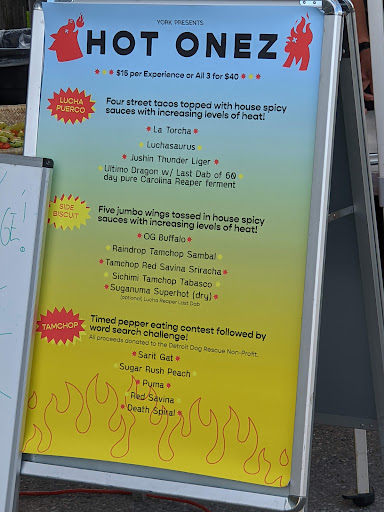 YORK PRESENTS
HOT ONEZ
$15 per Experience or All 3 for $40
LUCHA
PUERCO
Four street tacos topped with house spicy
sauces with increasing levels of heat!
La Torcha
Luchasaurus
Jushin Thunder Liger
Ultimo Dragon w/ Last Dab of 60
day pure Carolina Reaper ferment
SIDE
BISCUIT
Five jumbo wings tossed in house spicy
sauces with increasing levels of heat!
OG Buffalo
Raindrop Tamchop Sambal
Tamchop Red Savina Sriracha
Sichimi Tamchop Tabasco
Suganuma Superhot (dry)
(optional) Lucha Reaper Last Dab
TAMCHOP
Timed pepper eating contest followed by
word search challenge!
All proceeds donated to the Detroit Dog Rescue Non-Profit.
Sarit Gat
Sugar Rush Peach
Purna
Red Savina
Death Spiral
GE!